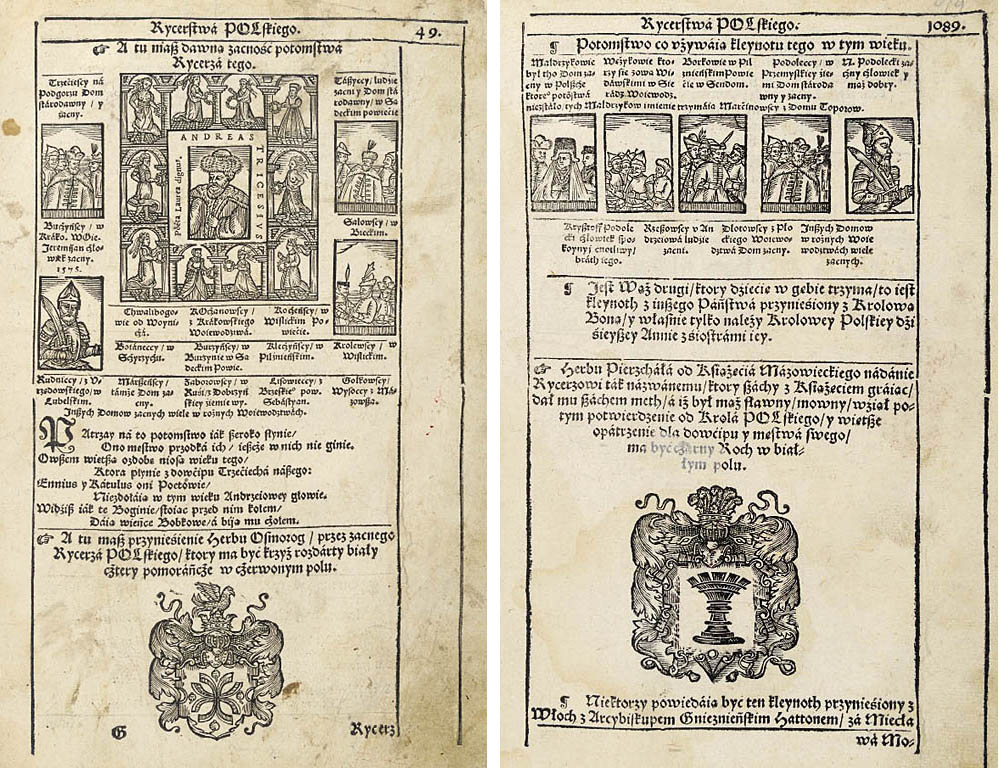 Rycerstwá POLskiego.
49.
☞ A tu masz dawną zacność potomstwá
Rycerzá tego.
Trzećiescy ná
Podgorzu Dom
stárodawny / y
zacny.
Táßyccy / ludzie
zacni y Dom stá
rodawny / w Sá
deckim powiećie
ANDREAS TRICESIVS
Pöëta Laurea dignus.
Burzyńscy / w
Kráko. Woie.
Jeremijan cżlo-
wiek zacny.
1575.
Salowscy / w
Bieckim.
Chwalibogo-
wie od Woyni
cżá.
KOchanowscy /
z Krákowskiego
Woiewodztwá.
Kocheńscy / w
Wislickim Po-
wiećie.
Botaneccy / w
Skrzycżu.
Burzyńscy / w
Burzynie w Sá
deckim Powie.
Klecżyńscy / w
Pilznieńskim.
Krolewscy / w
Wislickim.
Rudniccy / z V-
rzedowskiego / w
Lubelskim.
Márßeńscy /
támże Dom zac-
ny.
Záborowscy / w
Ruśi / z Dobrzyń
skiey źiemie wy.
Lisowieccy / z
Brzeskiey pow.
Sebástyan.
Golkowscy /
Wysoccy z Má-
zowßá.
Jnßych Domow zacnych wiele w rożnych Woiewodztwach.
PAtrzay ná to potomstwo iák ßeroko słynie /
Ono męstwo przodká ich / ießcże w nich nie ginie.
Owßem wietßa ozdobe niosą wieku tego /
Ktora płynie z dowćipu Trzećiechá náßego:
Ennius y Kátulus oni Poetowie /
Niezdoláią w tym wieku Andrzeiowey głowie.
Widziß iák te Boginie / stoiąc przed nim kołem /
Dáią wieńce Bobkowe / á biją mu cżołem.
☞ A tu masz przynieśienie Herbu Osmorog / przez zacnego
Rycerzá POLskiego / ktory ma być krzyż rozdárty biały
cżtery pomoráncże w cżerwonym polu.
G
Rycerz
Rycerstwá POLskiego.
1089.
¶ Potomstwo co vżywáią kleynotu tego w tym wieku.
Máldrzykowie
był tho Dom zac-
ny w Polßcże
ktore° potostwá
Wężykowie kto-
rzy sie zową Wi
dáwskimi w Sie
rádz. Woiewodz.
Borkowie w Pil
znieńskim Powie
ćie w Sendom.
Podoleccy / w
Przemyskiey źie-
mi Dom stároda
wny y zacny.
N. Podolecki zá-
cny cżłowiek y
mąż dobry.
niezstáło / tych Máldrzykow imienie trzymáią Márcinowscy z Domu Toporow.
Krysztoff Podole
cki cżłowiek spo-
koyny / cnotliwy /
bráth iego.
Rzeßowscy v An
drzeiowá ludzie
zacni.
Dłotowscy z Plo
ckiego Woiewo-
dztwá Dom zacny.
Jnßych Domow
w rożnych Woie
wodztwách wiele
zacnych.
¶ Jest Wąż drugi / ktory dziecie w gębie trzyma / to iest
kleynoth z inßego Páństwá przynieśiony z Krolową
Boną / y własnie tylko należy Krolowey Polskiey dźi
śieyßey Annie z śiostrámi iey.
☞ Herbu Pierzcháłá od Xiążećiá Mázowieckiego nádánie
Rycerzowi ták nazwánemu / ktory ßáchy z Xiążećiem gráiąc /
dał mu ßáchem meth / á iż był mąż sławny / mowny / wziął po-
tym potwierdzenie od Krolá POLskiego / y wietße
opátrzenie dla dowćipu y męstwá swego /
ma być cżarny Roch w bia-
łym polu.
¶ Niektorzy powiedáią być ten kleynoth przynieśiony z
Włoch z Arcybiskupem Gnieznieńskim Hattonem / zá Miecłá
wá Mo-